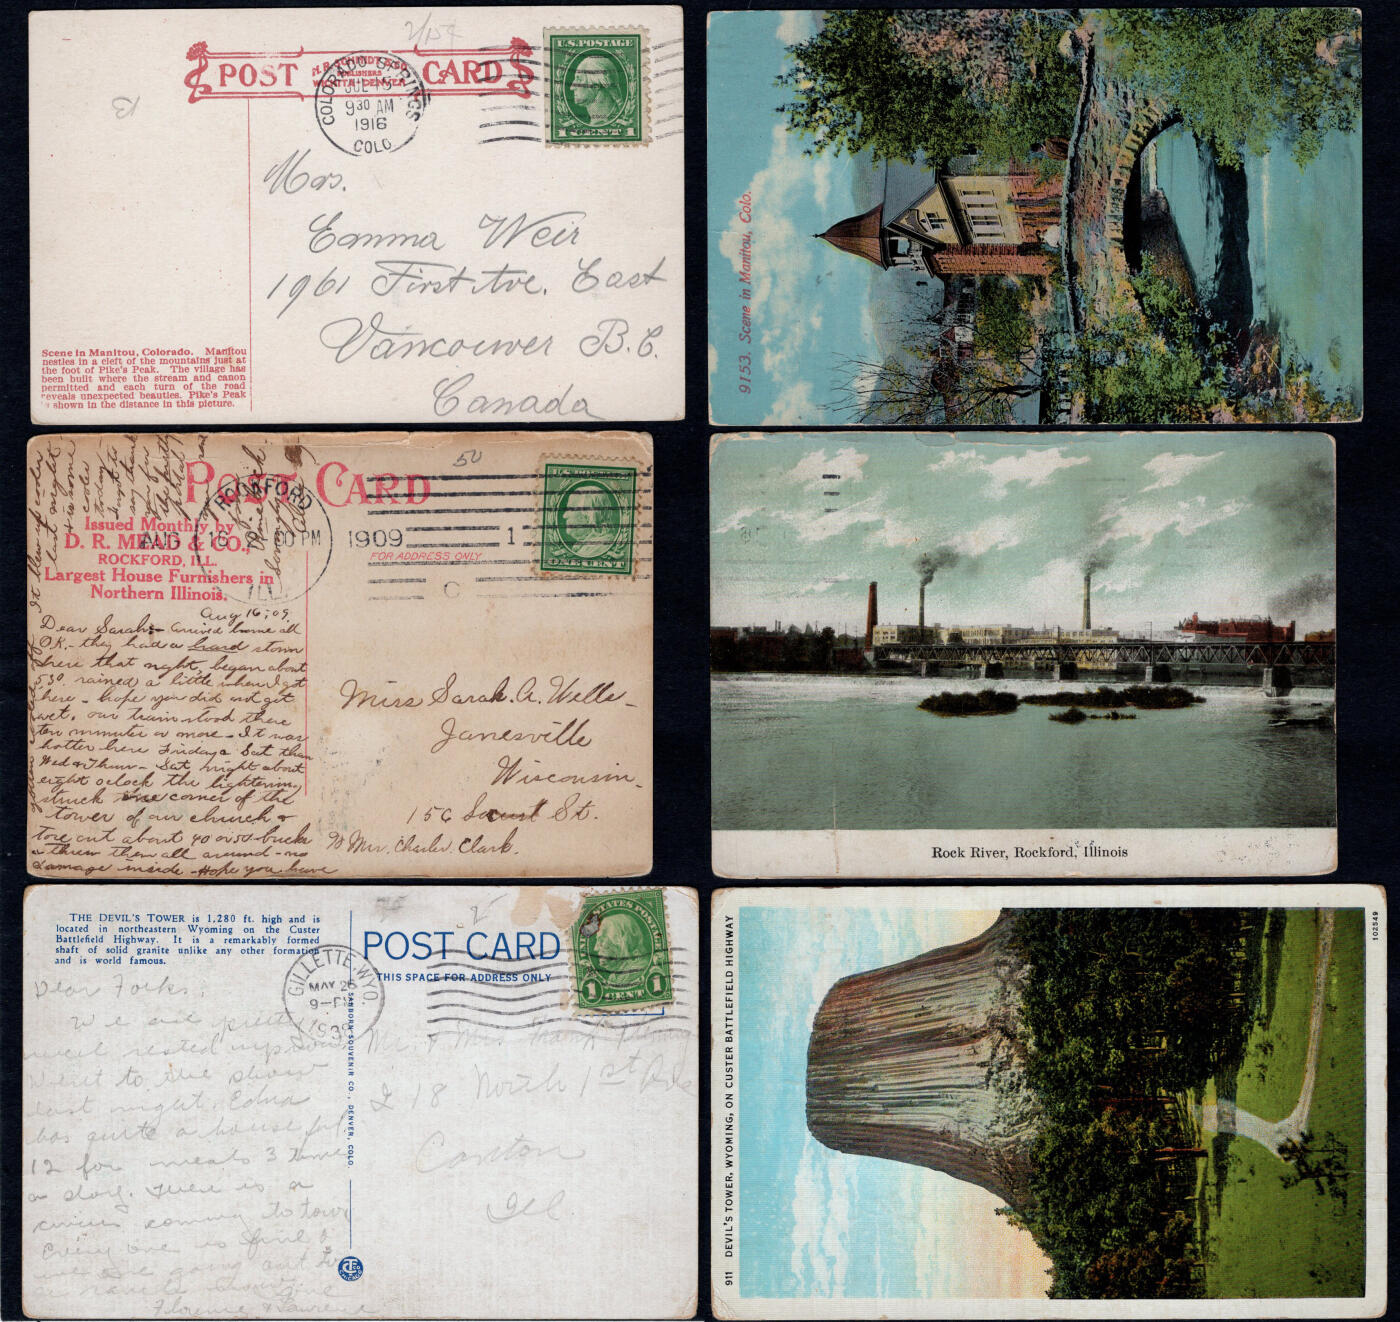 2/15¢
POST CARD
H.H. TAMMEN
PUBLISHERS
DENVER
COLORADO SPRINGS
JUL 15
9 30 AM
1916
COLO
U.S. POSTAGE
1 CENT 1
Mrs.
Emma Weir
1961 First Ave. East
Vancouver B.C.
Canada
Scene in Manitou, Colorado. Manitou
nestles in a cleft of the mountains just at
the foot of Pike's Peak. The village has
been built where the stream and canon
permitted and each turn of the road
reveals unexpected beauties. Pike's Peak
is shown in the distance in this picture.
9153. Scene in Manitou, Colo.
POST CARD
50
Issued Monthly by
D. R. MEAD & CO.,
ROCKFORD, ILL.
Largest House Furnishers in
Northern Illinois.
ROCKFORD
AUG 16 12 00 PM
ILL.
1909
1
C
FOR ADDRESS ONLY
U.S. POSTAGE
ONE CENT
It blew up cooler
last night
Aug 16, 09.
Dear Sarah - Arrived home all
OK. - they had a hard storm
here that night, began about
5.30 rained a little when I got
here - hope you did not get
wet, our train stood there
ten minutes or more - It was
hotter here Friday & Sat than
Wed & Thurs - Sat night about
eight oclock the lightening
struck one corner of the
tower of our church &
tore out about 40 or 50 bricks
& threw them all around - no
damage inside - Hope you have
Miss Sarah. A. Wells -
Janesville
Wisconsin -
156 Locust St.
% Mrs. Charles. Clark.
Rock River, Rockford, Illinois
THE DEVIL'S TOWER is 1,280 ft. high and is
located in northeastern Wyoming on the Custer
Battlefield Highway. It is a remarkably formed
shaft of solid granite unlike any other formation
and is world famous.
POST CARD
THIS SPACE FOR ADDRESS ONLY
GILLETTE WYO.
MAY 26
9-PM
193
UNITED STATES POSTAGE
1 CENT 1
SANBORN SOUVENIR CO., DENVER, COLO.
Dear Folks;
We are pretty
well rested up now
Went to the show
last night. Edna
has quite a house full
12 for meals 3 times
a day. There is a
circus coming to town
Every one is fine
Florence & Lawrence
Mr. & Mrs Frank
218 North 1st Ave
Canton
Ill.
CT CO
CHICAGO
911 DEVIL'S TOWER, WYOMING, ON CUSTER BATTLEFIELD HIGHWAY
102549